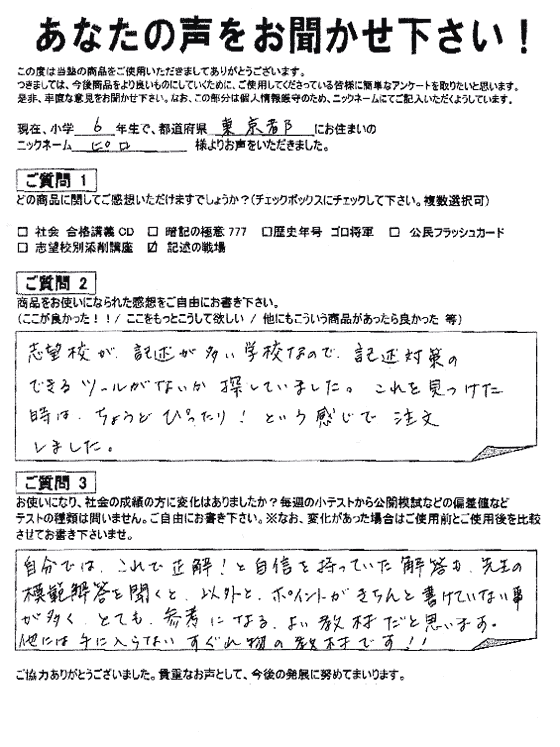 あなたの声をお聞かせ下さい！
この度は当塾の商品をご使用いただきましてありがとうございます。
つきましては、今後商品をより良いものにしていくために、ご使用してくださっている皆様に簡単なアンケートを取りたいと思います。
是非、率直な意見をお聞かせ下さい。なお、この部分は個人情報厳守のため、ニックネームにてご記入いただくようしています。
現在、小学 6 年生で、都道府県 東京都 にお住まいの
ニックネーム ピロ 様よりお声をいただきました。
ご質問 1
どの商品に関してご感想いただけますでしょうか？(チェックボックスにチェックして下さい。複数選択可)
□ 社会 合格講義CD □ 暗記の極意777 □歴史年号 ゴロ将軍 □ 公民フラッシュカード
□ 志望校別添削講座 ☑ 記述の戦場
ご質問 2
商品をお使いになられた感想をご自由にお書き下さい。
(ここが良かった！！/ ここをもっとこうして欲しい / 他にもこういう商品があったら良かった 等)
志望校が、記述が多い学校なので、記述対策の
できるツールがないか探していました。これを見つけた
時は、ちょうどぴったり！という感じで注文
しました。
ご質問 3
お使いになり、社会の成績の方に変化はありましたか？毎週の小テストから公開模試などの偏差値など
テストの種類は問いません。ご自由にお書き下さい。※なお、変化があった場合はご使用前とご使用後を比較
させてお書き下さいませ。
自分では、これで正解！と自信を持っていた解答も、先生の
模範解答を聞くと、以外と、ポイントがきちんと書けていない事
が多く、とても、参考になる、よい教材だと思います。
他には手に入らないすぐれ物の教材です！！
ご協力ありがとうございました。貴重なお声として、今後の発展に努めてまいります。